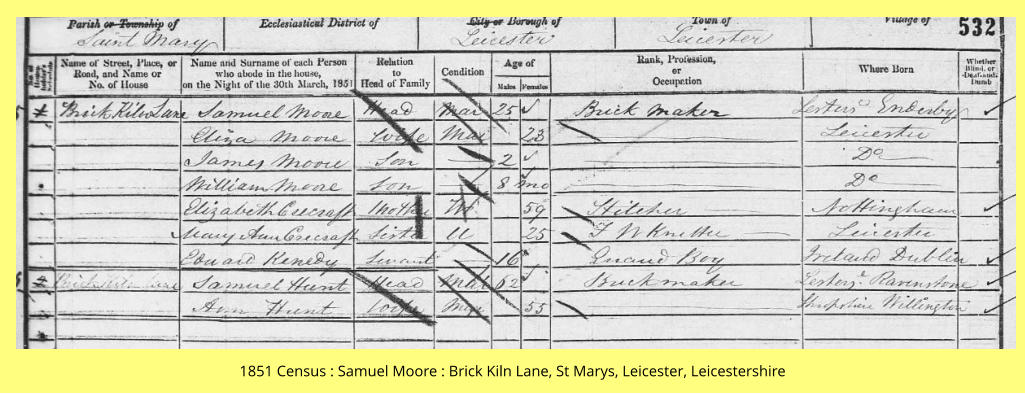 Parish or Township of Ecclesiastical District of City or Borough of Town of Village of 532
Saint Mary Leicester Leicester
Name of Street, Place, or Road, and Name or No. of House
Name and Surname of each Person who abode in the house, on the Night of the 30th March, 1851
Relation to Head of Family
Condition
Age of
Males Females
Rank, Profession, or Occupation
Where Born
Whether Blind, or Deaf-and-Dumb
Brick Kiln Lane Samuel Moore Head Mar 25 Brick maker Lesters Enderby
Eliza Moore Wife Mar 23 Leicester
James Moore Son 2 Do
William Moore Son 8 mo Do
Elizabeth Crecraft Mother W 59 Stitcher Nottingham
Mary Ann Crecraft Sister U 25 F W Knitter Leicester
Edward Kenedy Servant 16 Errand Boy Ireland Dublin
Samuel Hunt Head Mar 62 Brickmaker Lesters Ravenstone
Ann Hunt Wife Mar 55 Shropshire Willington
1851 Census : Samuel Moore : Brick Kiln Lane, St Marys, Leicester, Leicestershire